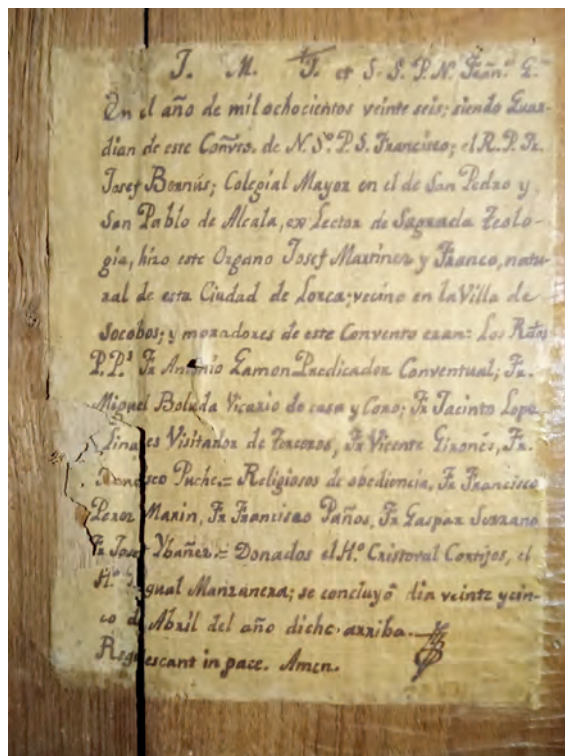 J. M. J. et S. S. P. N. Frãn.º G.
En el año de mil ochocientos veinte seis; siendo Guar-
dian de este Coñvto. de N. Sº. P. S. Francisco; el R. P. Fr.
Josef Bernús; Colegial Mayor en el de San Pedro y
San Pablo de Alcala, ex Lector de Sagrada Teolo-
gia, hizo este Organo Josef Martinez y Franco, natu-
ral de esta Ciudad de Lorca; vecino en la Villa de
Socobos; y moradores de este Convento eran: Los Rdos
P.P.s Fr Antonio Gamon Predicador Conventual; Fr.
Miguel Boluda Vicario de casa y Coro; Fr Jacinto Lope
Linares Visitador de Terceros, Fr Vicente Gironés, Fr.
Puche.= Religiosos de obediencia, Fr Francisco
Perez Marin, Fr Francisco Paños, Fr Gaspar Serrano
Fr Josef Ybañez.= Donados el Hº. Cristoval Cortijos, el
Hº. Manzanera; se concluyó dia veinte y cin-
co de Abril del año dicho arriba.
Requiescant in pace. Amen.